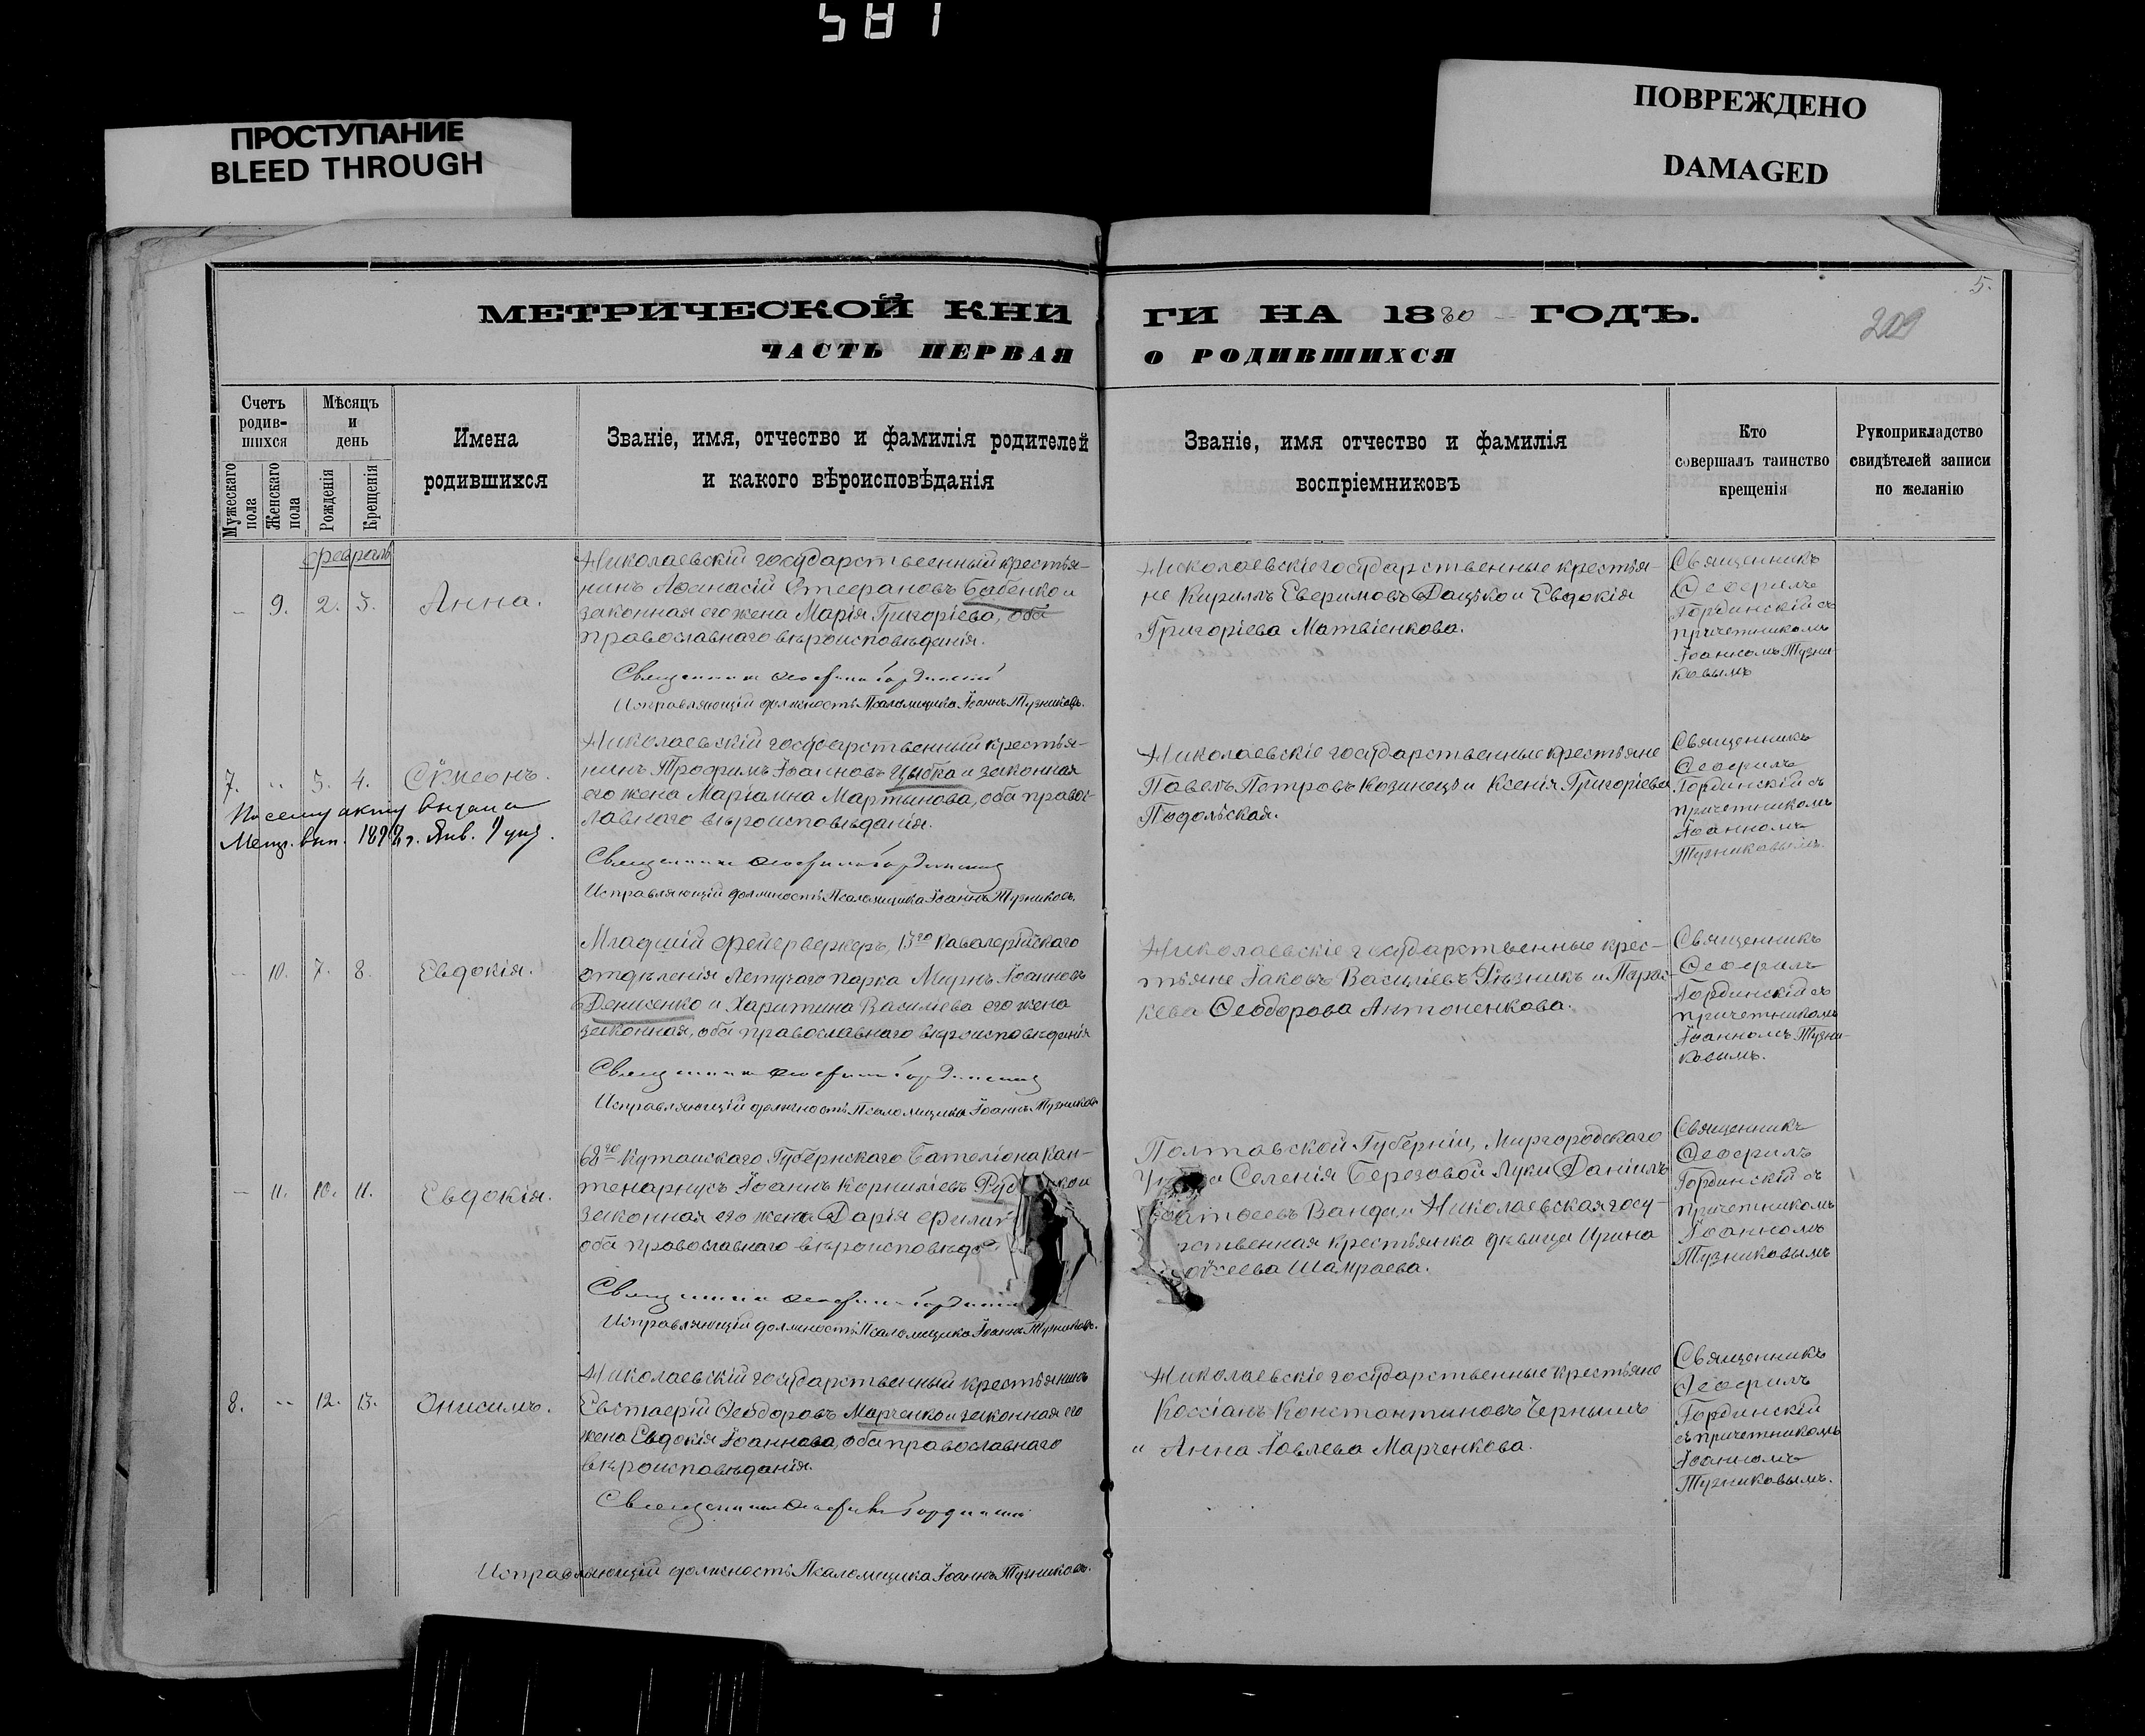 581
ПРОСТУПАНИЕ
BLEED THROUGH
ПОВРЕЖДЕНО
DAMAGED
5.
209
МЕТРИЧЕСКОЙ КНИ
ГИ НА 1880 ГОДЪ.
ЧАСТЬ ПЕРВАЯ
О РОДИВШИХСЯ
Счетъ
родив-
шихся
Мужескаго
пола
Женскаго
пола
Мѣсяцъ
и
день
Рожденія
Крещенія
Имена
родившихся
Званіе, имя, отчество и фамилія родителей
и какого вѣроисповѣданія
Званіе, имя отчество и фамилія
воспріемниковъ
Кто
совершалъ таинство
крещенія
Рукоприкладство
свидѣтелей записи
по желанію
Февраль
9. 2. 3. Анна.
Николаевскій государственный крестья-
нинъ Аѳанасій Стефановъ Бабенко и
законная его жена Марія Григоріева, оба
православнаго вѣроисповѣданія.
Священникъ Ѳеофилъ Гординскій
Исправляющій должность Псаломщика Іоаннъ Тузниковъ.
Николаевскіе государственные крестья-
не Кириллъ Евфимовъ Дацько и Евдокія
Григоріева Матвіенкова.
Священникъ
Ѳеофилъ
Гординскій съ
причетникомъ
Іоанномъ Тузни-
ковымъ
7. 3. 4. Сѵмеонъ.
По сему акту выдана
Метр. вып. 1898 г. Янв.
Николаевскій государственный крестья-
нинъ Трофимъ Іоанновъ Цыбка и законная
его жена Маріамна Мартынова, оба правос-
лавнаго вѣроисповѣданія.
Священникъ Ѳеофилъ Гординскій
Исправляющій должность Псаломщика Іоаннъ Тузниковъ.
Николаевскіе государственные крестьяне
Павелъ Петровъ Козинецъ и Ксенія Григоріева
Подольская.
Священникъ
Ѳеофилъ
Гординскій съ
причетникомъ
Іоанномъ
Тузниковымъ.
10. 7. 8. Евдокія.
Младшій фейерверкеръ, 13го Кавалерійскаго
отдѣленія Летучаго парка Миронъ Іоанновъ
Денисенко и Харитина Василіева его жена
законная, оба православнаго вѣроисповѣданія
Священникъ Ѳеофилъ Гординскій
Исправляющій должность Псаломщика Іоаннъ Тузниковъ
Николаевскіе государственные крес-
тьяне Іаковъ Василіевъ Рѣзникъ и Парас-
кева Ѳеодорова Антоненкова.
Священникъ
Ѳеофилъ
Гординскій съ
причетникомъ
Іоанномъ Тузни-
ковымъ.
11. 10. 11. Евдокія.
68го Кутаисскаго Губернскаго Баталіона Кап-
тенармусъ Іоаннъ Корниліевъ
законная его жена Дарія
оба православнаго
Священникъ Ѳеофилъ
Исправляющій должность Псаломщика Іоаннъ Тузниковъ.
Полтавской Губерніи, Миргородскаго
Селенія Березовой Луки Даніилъ
Ванда и Николаевская госу-
крестьянка дѣвица Ирина
Шамраева.
Священникъ
Ѳеофилъ
Гординскій съ
причетникомъ
Іоанномъ
Тузниковымъ
8. 12. 13. Онисимъ.
Николаевскій государственный крестьянинъ
Евстафій Ѳеодоровъ Марченко и законная его
жена Евдокія Іоаннова, оба православнаго
вѣроисповѣданія.
Священникъ Ѳеофилъ Гординскій
Исправляющій должность Псаломщика Іоаннъ Тузниковъ.
Николаевскіе государственные крестьяне
Кассіанъ Константиновъ Чернышъ
и Анна Іовлева Марченкова.
Священникъ
Ѳеофилъ
Гординскій
съ причетникомъ
Іоанномъ
Тузниковымъ.